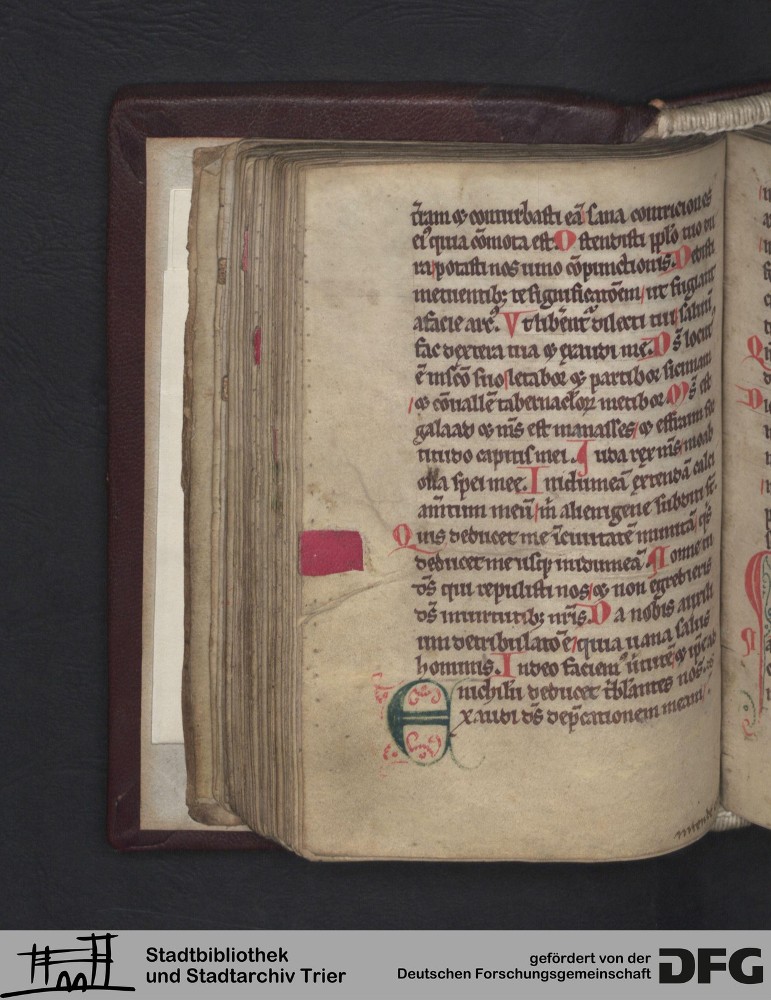 t̄ram ⁊ conturbasti eā / sana contriciones
ei⁹ quia cōmota est. Ostendisti pp̄lo tuo du
ra / potasti nos uino cōpunctionis. Dedisti
metuentib; te significatōem / ut fugiant
a facie arc⁹. Vt libent᷑ dilecti tui / saluū
fac dextera tua ⁊ exaudi me. Ds̄ locut⁹
ē in sc̄o suo / letabor ⁊ partibor sicimam
/ ⁊ cōuallē tabernac̄lor̄ metibor. Ms̄ est
galaad ⁊ ms̄ est manasses / ⁊ effraim for
titudo capitis mei. Iuda rex ms̄ / moab
olla spei mee. In idumeā extendā calci
amtum meū / m̄ alienigene subditi st̄.
Quis deducet me ī ciuitatē munitā / q͛s
deducet me usq; in idumeā. Nonne tu
ds̄ qui repulisti nos / ⁊ non egredieris
ds̄ in uirtutib; nr̄is. Da nobis auxili
um de tribulatōe / quia uana salus
hominis. In deo faciem⁹ uirtutē / ⁊ ip̄e ad
nichilū deducet t̄blantes nos.
Exaudi ds̄ dep̄cationem meam /
intende
Stadtbibliothek
und Stadtarchiv Trier
gefördert von der
Deutschen Forschungsgemeinschaft
DFG